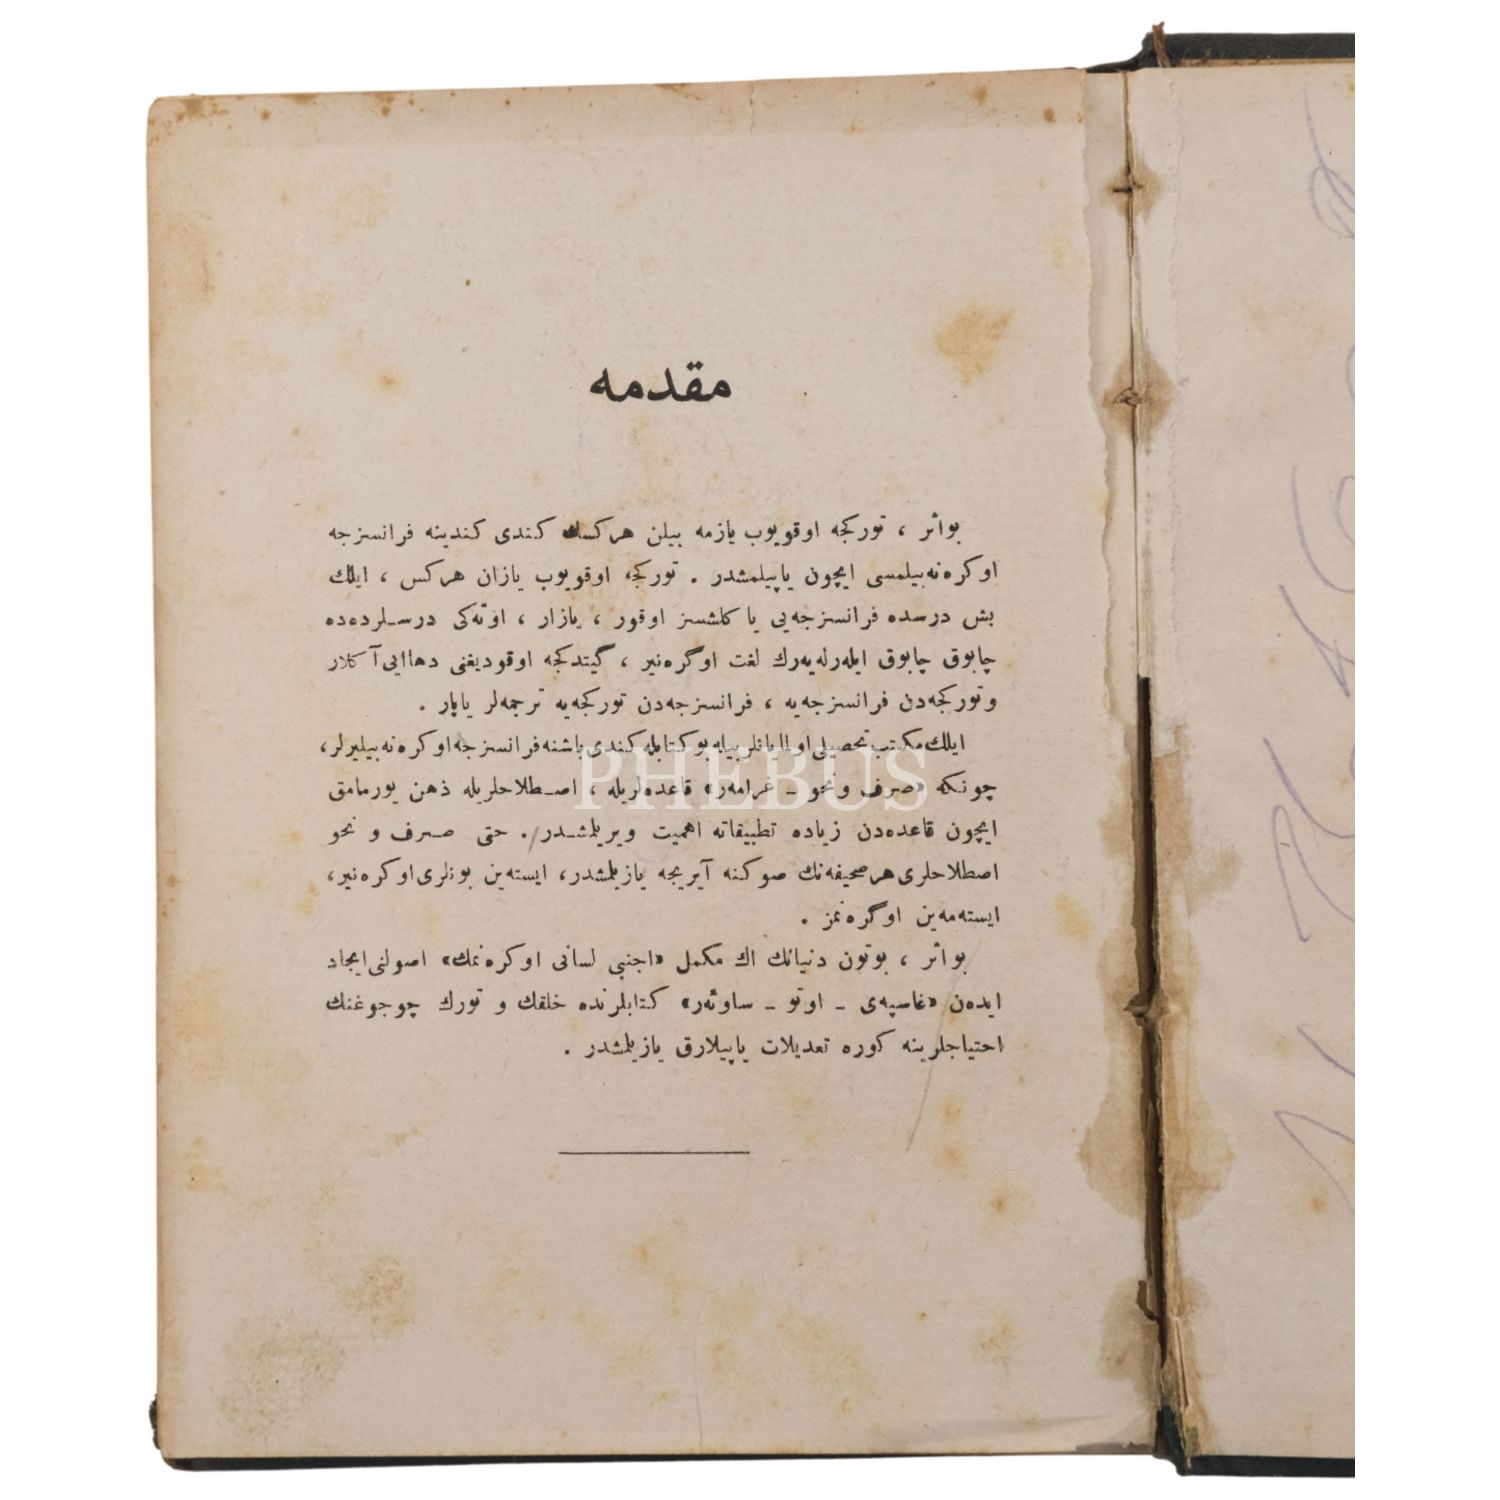 مقدمه
بو اثر ، تورکجه اوقویوب یازمه بیلن هرکسك کندی کندینه فرانسزجه
اوکره‌نه‌بیلمسی ایچون یاپیلمشدر . تورکجه اوقویوب یازان هرکس ، ایلك
بش درسده فرانسزجه‌یی یاکلشسز اوقور ، یازار ، اوته‌کی درسلرده‌ده
چابوق چابوق ایله‌رله‌یه‌رك لغت اوگره‌نیر ، گیتدکجه اوقودیغنی دها ایی آکلار
و تورکجه‌دن فرانسزجه‌یه ، فرانسزجه‌دن تورکجه‌یه ترجمه‌لر یاپار .
ایلك مکتب تحصیلی اولمایانلر بیله بو کتابله کندی باشنه فرانسزجه اوکره‌نه‌بیلیرلر،
چونکه «صرف و نحو ـ غرامه‌ر» قاعده‌لریله ، اصطلاحلریله ذهن یورمامق
ایچون قاعده‌دن زیاده تطبیقاته اهمیت ویریلمشدر . حتی صرف و نحو
اصطلاحلری هر صحیفه‌نك صوکنه آیریجه یازیلمشدر، ایسته‌ین بونلری اوکره‌نیر،
ایسته‌مه‌ین اوگره‌نمز .
بو اثر ، بوتون دنیانك اك مکمل «اجنبی لسانی اوکره‌نمك» اصولنی ایجاد
ایده‌ن «غاسپه‌ی ـ اوتو ـ ساوئه‌ر» کتابلرنده خلقك و تورك چوجوغنك
احتیاجلرینه کوره تعدیلات یاپیلارق یازیلمشدر .
PHEBUS